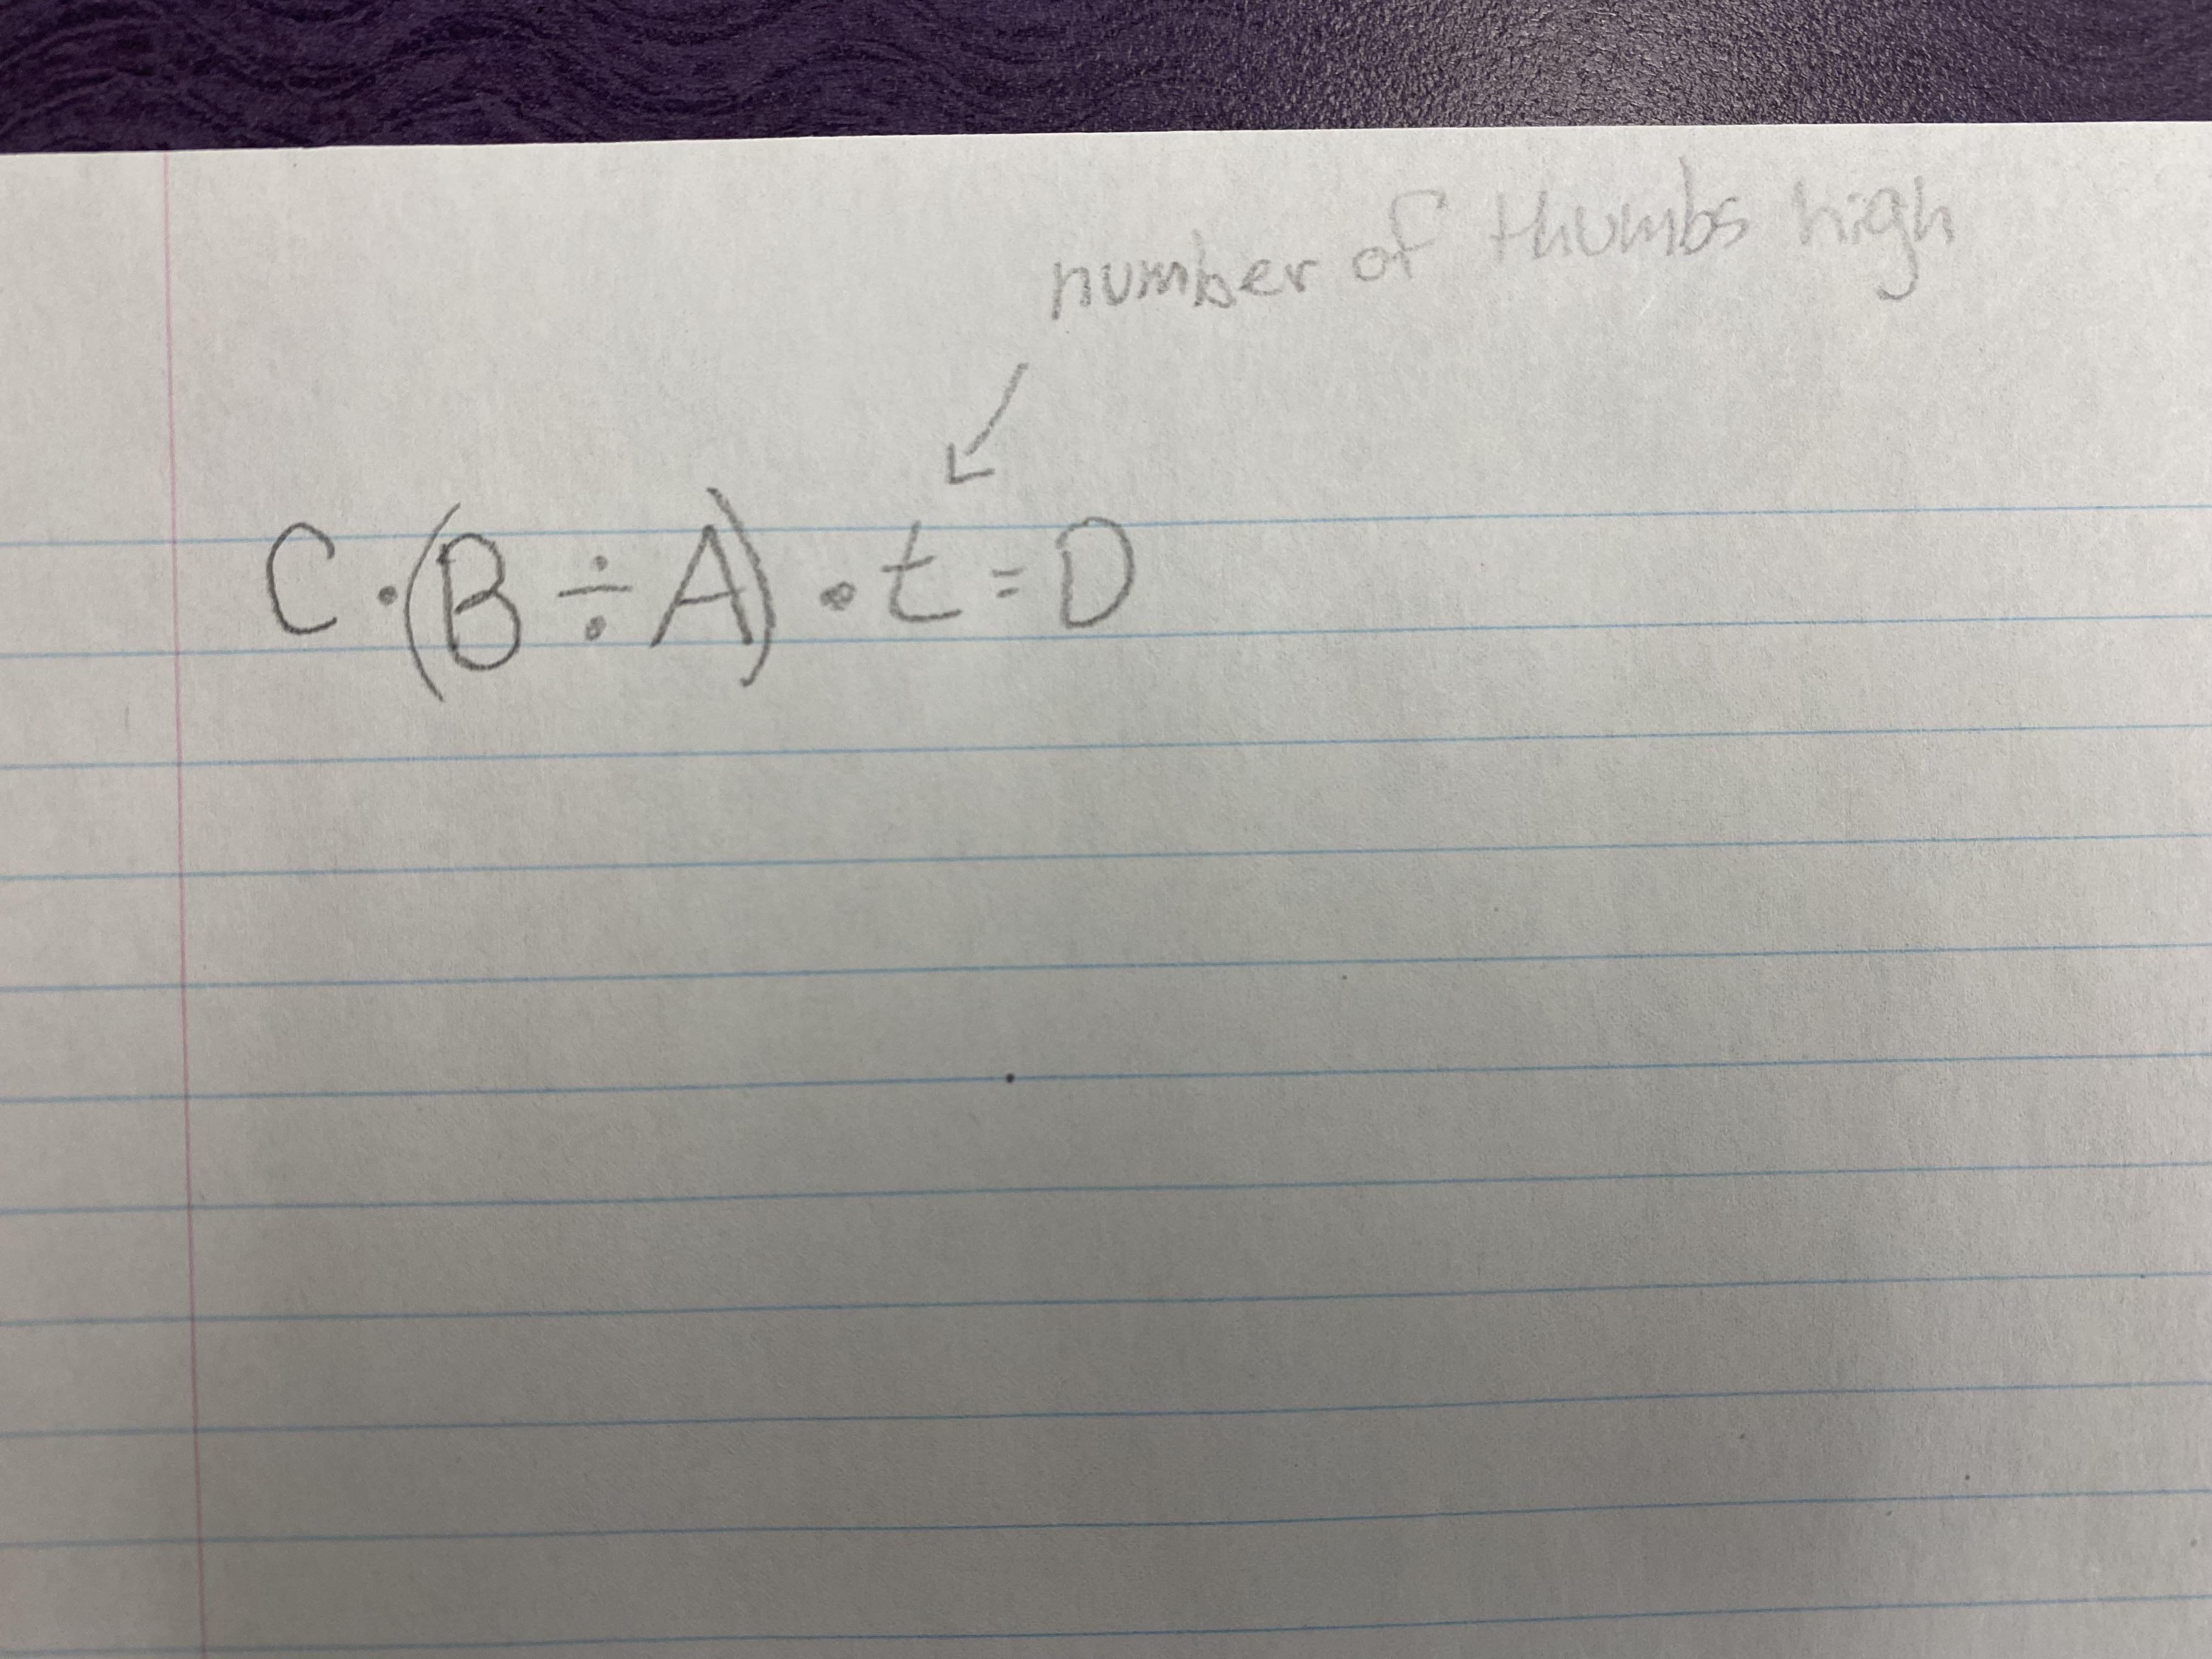 number of thumbs high
C · (B ÷ A) · t = D